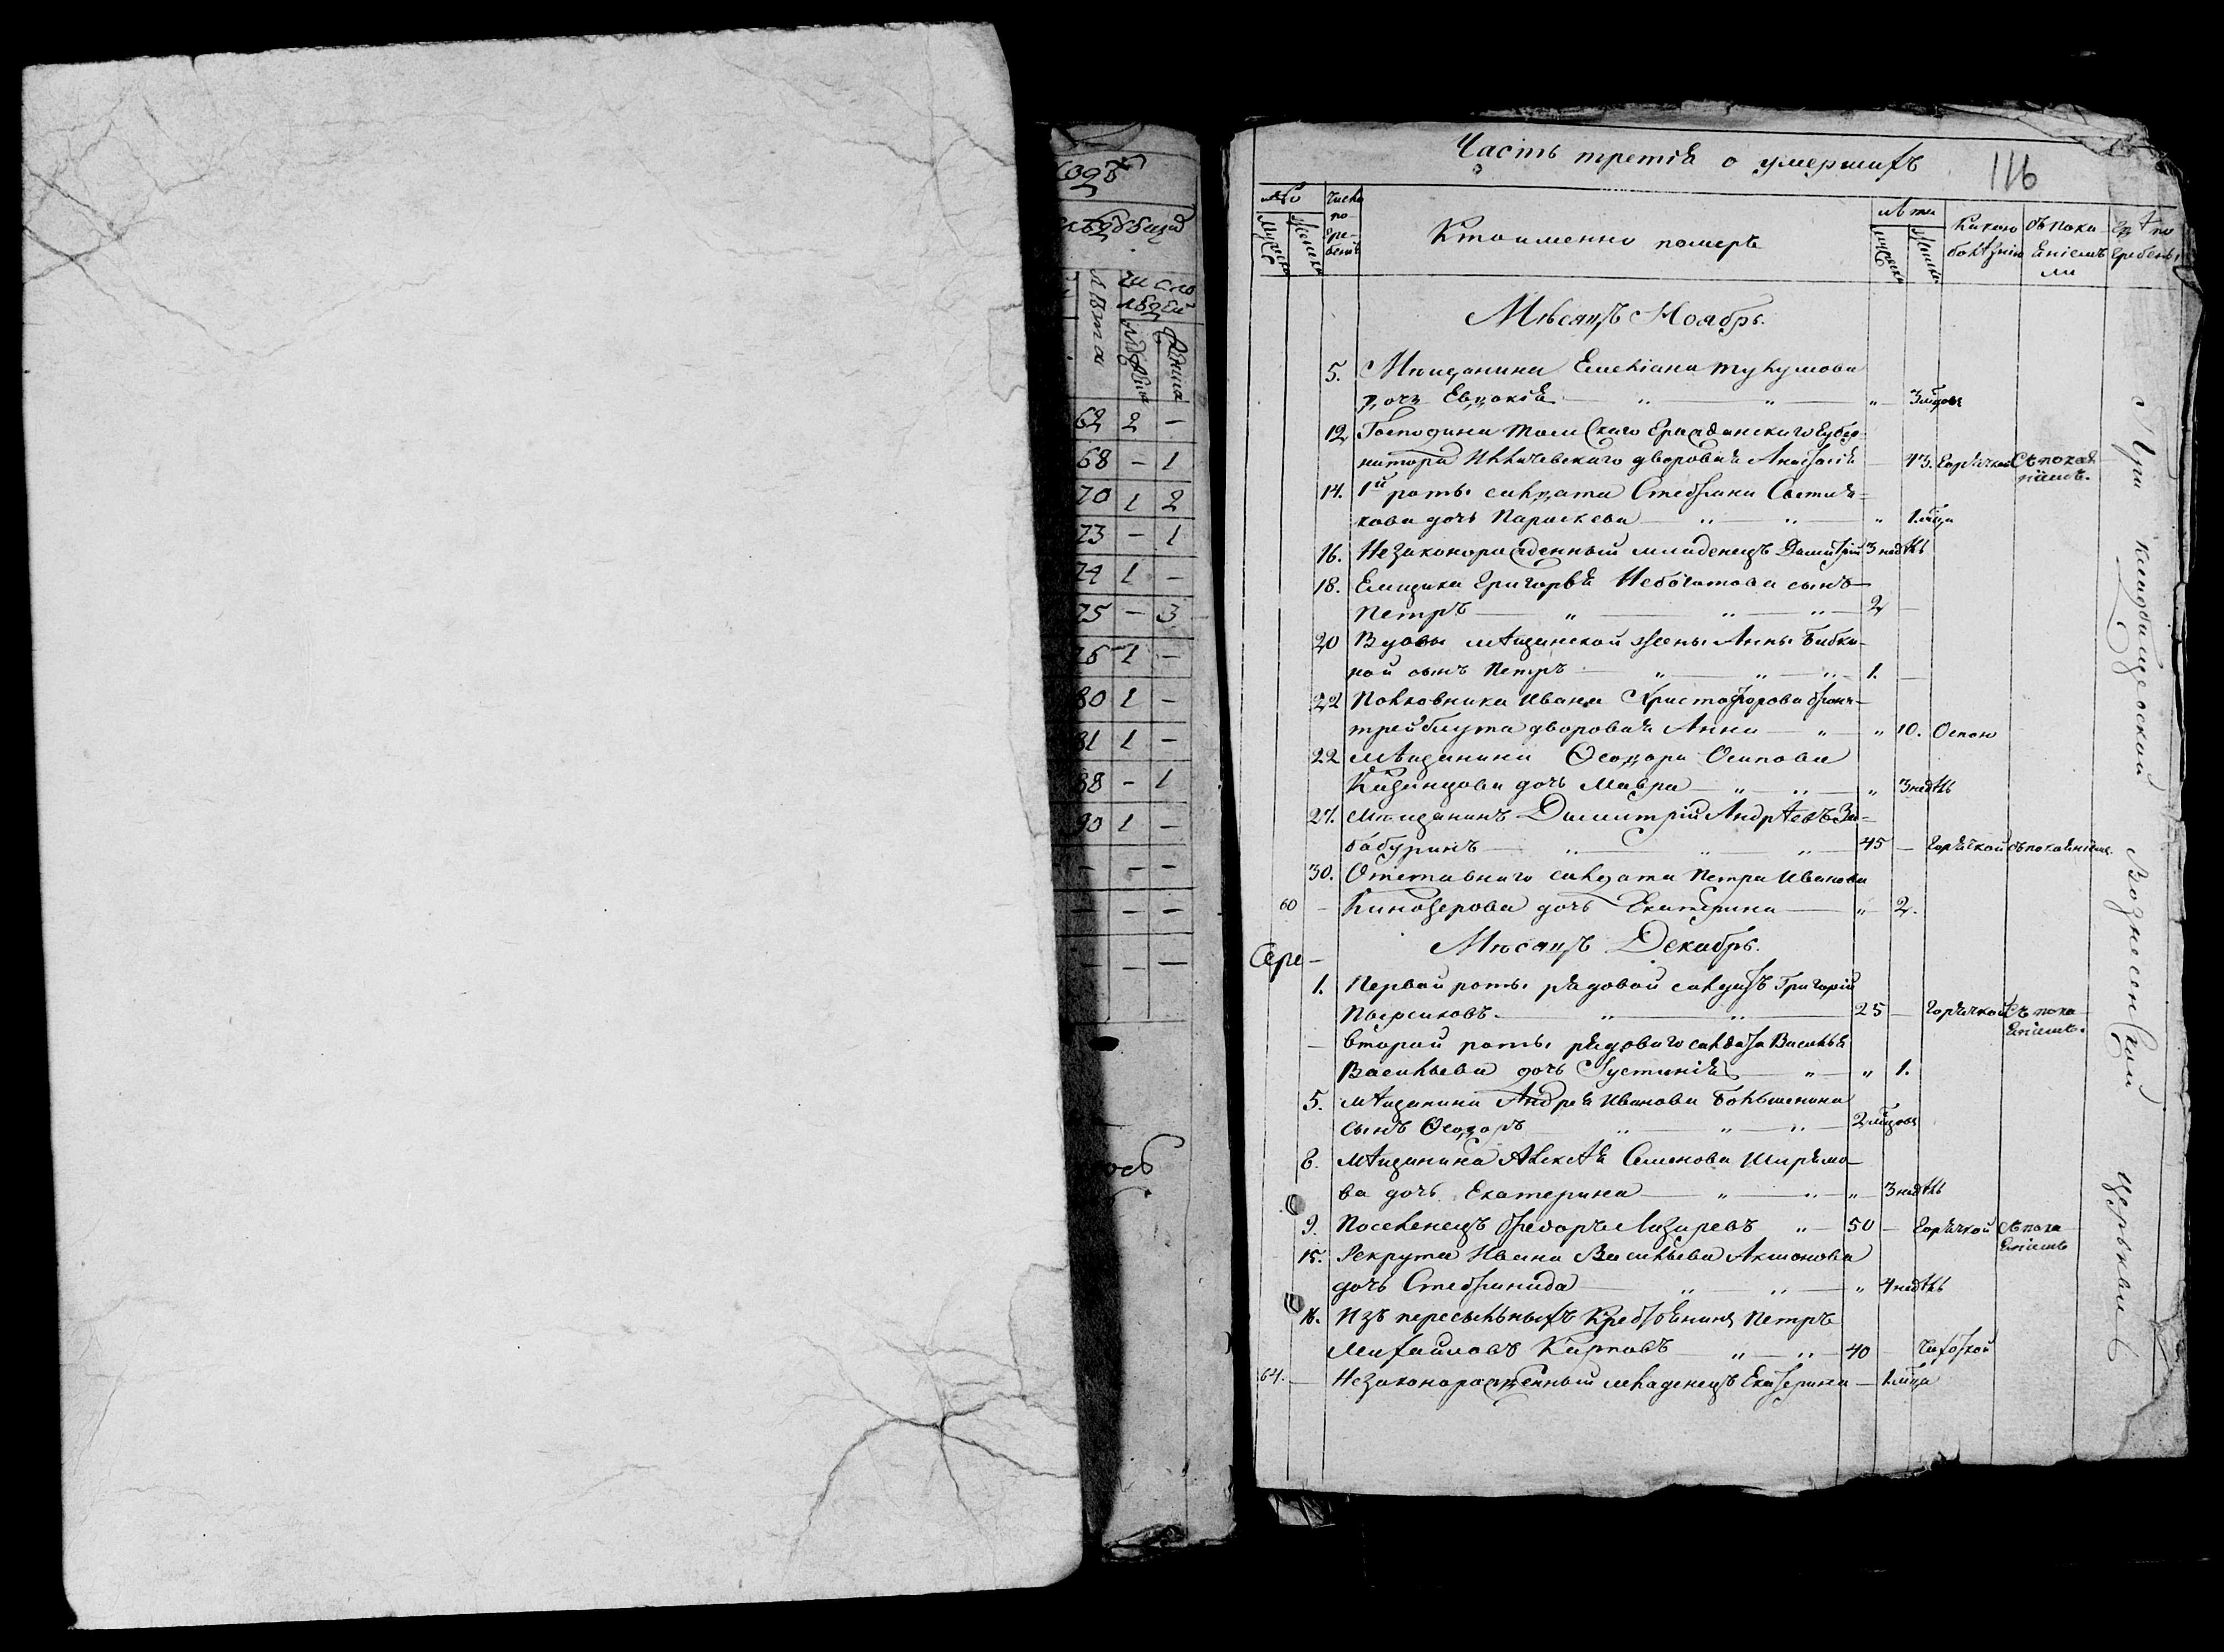 годъ
62 2 –
68 – 1
70 1 2
73 – 1
74 1 –
75 – 3
76 1 –
80 1 –
81 1 –
88 – 1
90 1 –
– – –
– – –
– – –
Часть третія о умершихъ
116
Число по гре-бенія
Кто именно померъ
лѣта
Какою болѣзнію
съ пока-яніемъ ли
гдѣ по гребены
Мѣсяцъ Ноябрь.
5. Мѣщанина Емеліана Тукумова
дочь Евдокія „ „ „ 3 мцовъ
12 Господина Томскаго Гражданскаго Губер-
натора Илличевскаго дворовая Анастасія – 43. Горячкой Съ покая
ніемъ.
14. 1й роты солдата Стефана Светля-
кова дочь Параскева „ „ „ 1 мца
16. Незаконорожденный младенецъ Димитрій 3 недѣль
18. Ямщика Григорья Небогатова сынъ
Петръ „ „ 2 –
20 Вдовы мѣщанской жены Анны Бабки-
ной сынъ Петръ „ „ „ 1. –
22 Полковника Ивана Христофорова фонъ-
трейблута дворовая Анна „ „ 10. Оспою
22 мѣщанина Ѳеодора Осипова
Казанцова дочь Мавра „ „ „ 3 недѣль
27. мѣщанинъ Димитрій Андрѣевъ За-
бабуринъ „ „ „ 45 – Горячкой съ покаяніемъ
30. Отставнаго солдата Петра Иванова
60 – Кинозерова дочь Екатерина „ 2.
Мѣсяцъ Декабрь.
Сере –
1. Первой роты рядовой солдатъ Григорій
Пырсиковъ „ „ 25 – Горячкой Съ пока
яніемъ.
– второй роты рядоваго солдата Василья
Васильева дочь Іустинія „ „ 1.
5. мѣщанина Андрея Иванова Большенина
сынъ Ѳеодоръ „ „ „ 2 мцовъ
8. мѣщанина Алексѣя Семенова Ширямо-
ва дочь Екатерина „ „ „ 3 недѣль
9. Поселенецъ Федоръ Лазаревъ „ 50 – Горячкой Съ пока
яніемъ
15. Рекрута Ивана Васильева Аксіонова
дочь Стефанида „ „ „ 4 недѣль
16. Изъ пересыльныхъ Крестьянинъ Петръ
Михайловъ Карповъ „ „ 40 Чахоткой
64. – Незаконорожденный младенецъ Екатерина – 1 мца
При кладбищеской Вознесенской церькви